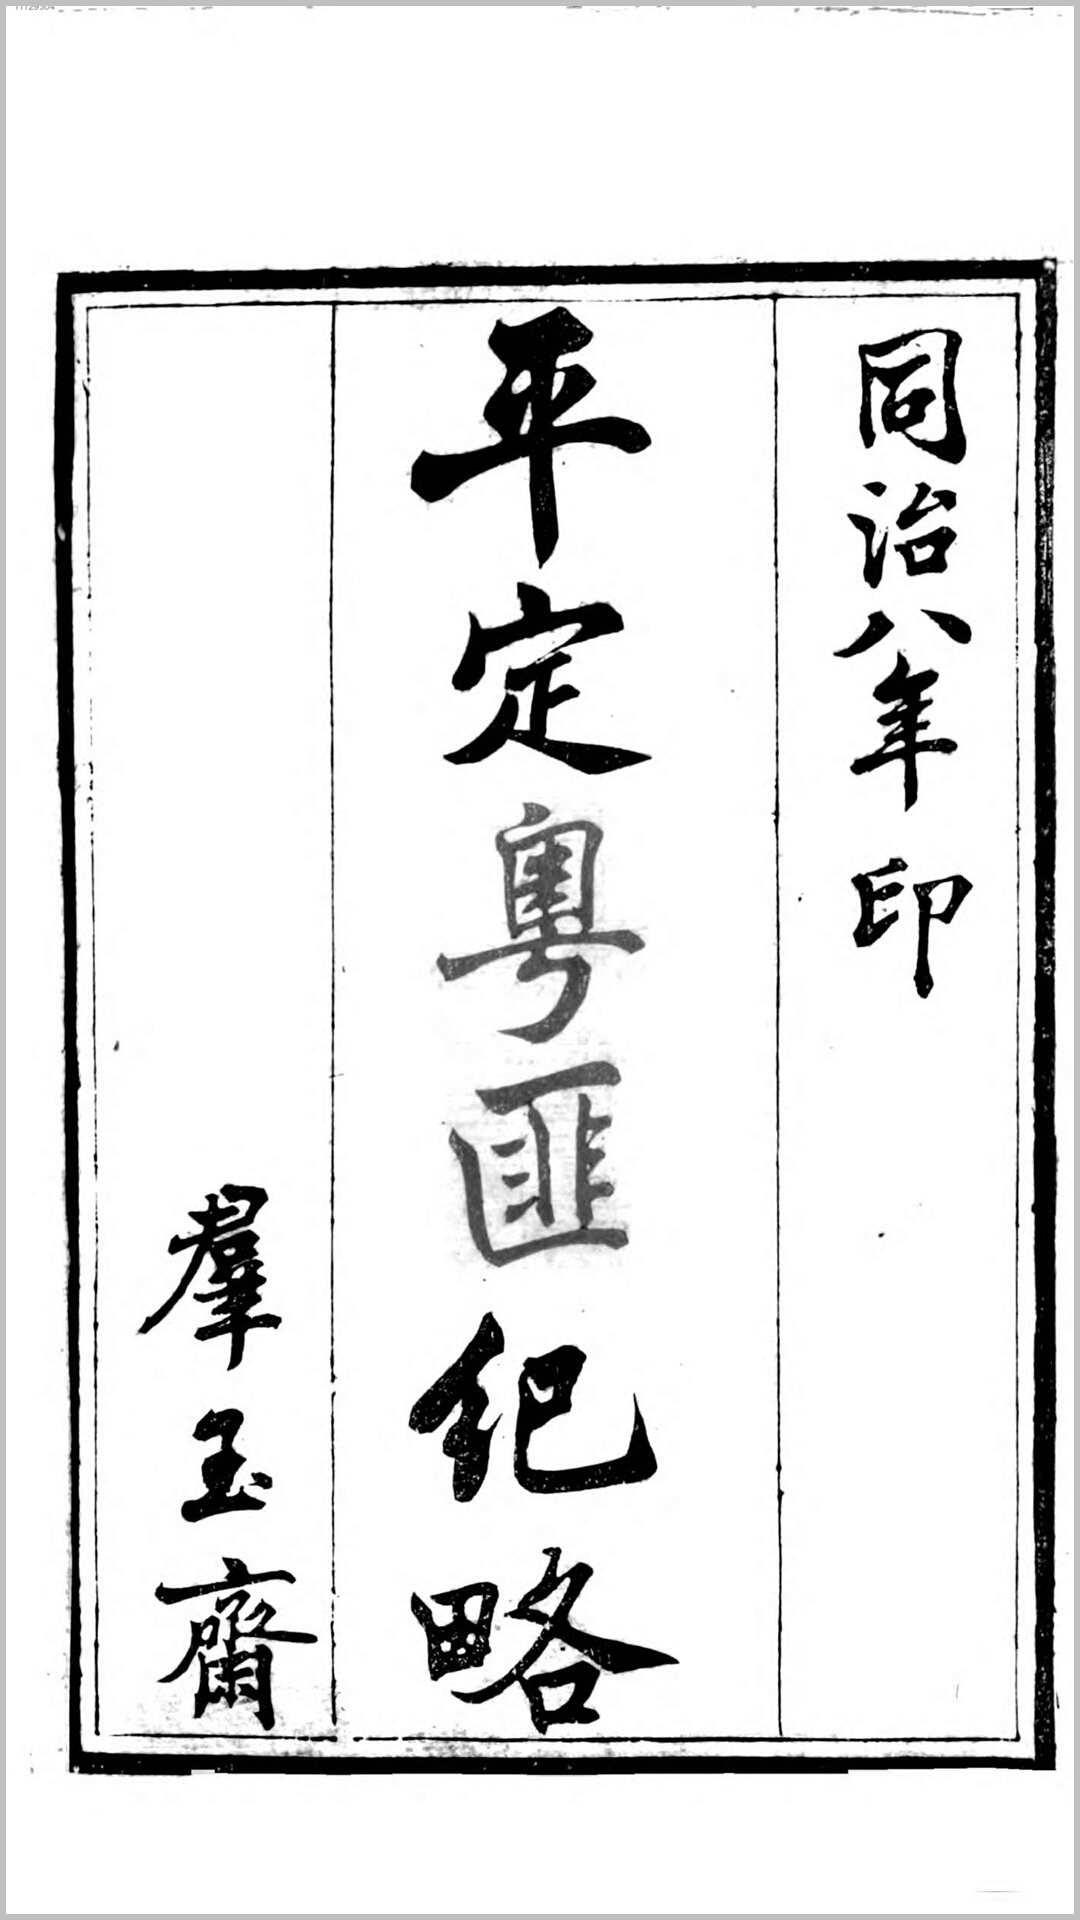 同治八年印
平定粤匪纪略
羣玉齋